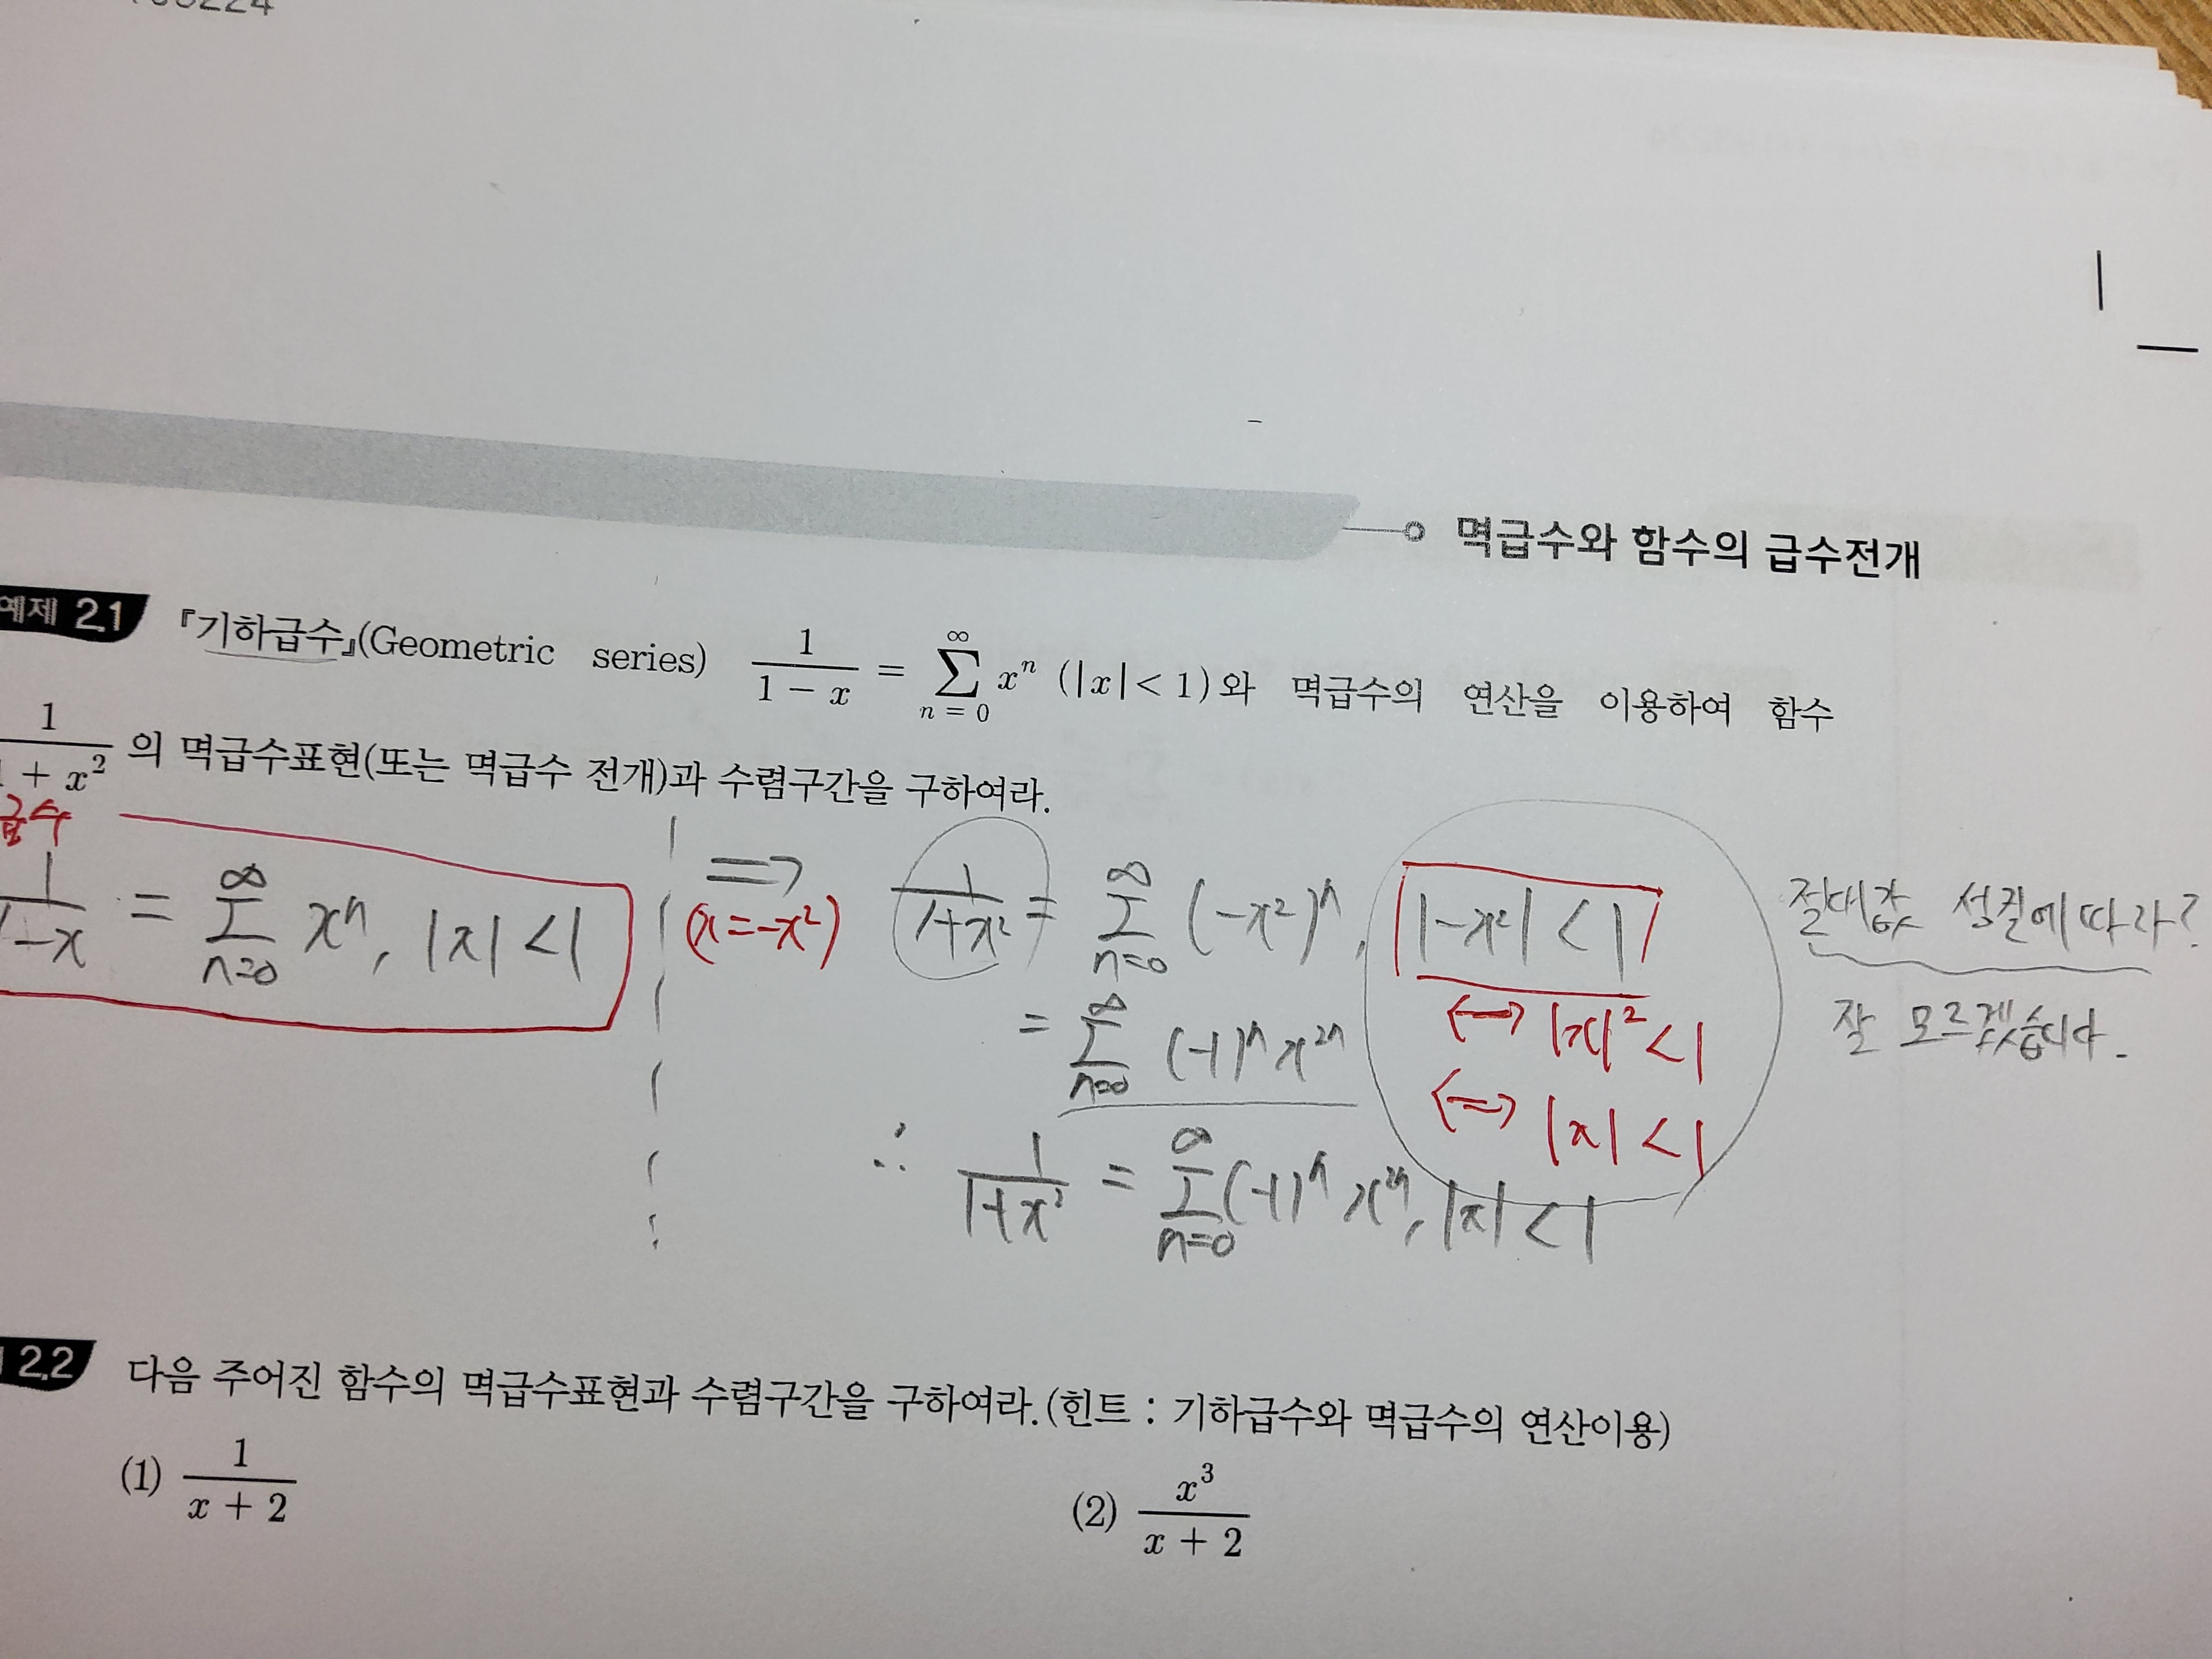 멱급수와 함수의 급수전개
예제 2.1 『기하급수』(Geometric series) 1/(1 − x) = ∑_{n = 0}^{∞} x^n (|x| < 1)와 멱급수의 연산을 이용하여 함수
1/(1 + x²) 의 멱급수표현(또는 멱급수 전개)과 수렴구간을 구하여라.
급수
1/(1−x) = ∑_{n=0}^{∞} x^n, |x| < 1
⟹ (x = −x²)
1/(1+x²) = ∑_{n=0}^{∞} (−x²)^n, |−x²| < 1
= ∑_{n=0}^{∞} (−1)^n x^{2n}
⟺ |x|² < 1
⟺ |x| < 1
∴ 1/(1+x²) = ∑_{n=0}^{∞} (−1)^n x^{2n}, |x| < 1
절대값 성질에 따라?
잘 모르겠습니다.
2.2 다음 주어진 함수의 멱급수표현과 수렴구간을 구하여라.(힌트 : 기하급수와 멱급수의 연산이용)
(1) 1/(x + 2)
(2) x³/(x + 2)